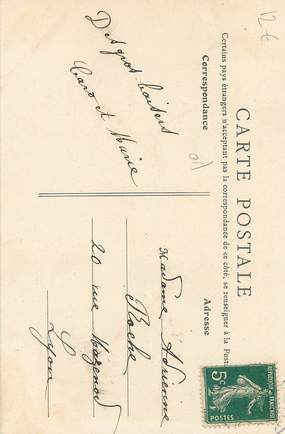 CARTE POSTALE
Certains pays étrangers n'acceptant pas la correspondance de ce côté, se renseigner à la Poste
Correspondance
Adresse
12 €
Des gros baisers
Caro et Marie
Madame Adrienne
Roche
20 rue Mazenod
Lyon
REPUBLIQUE FRANÇAISE
5c
POSTES